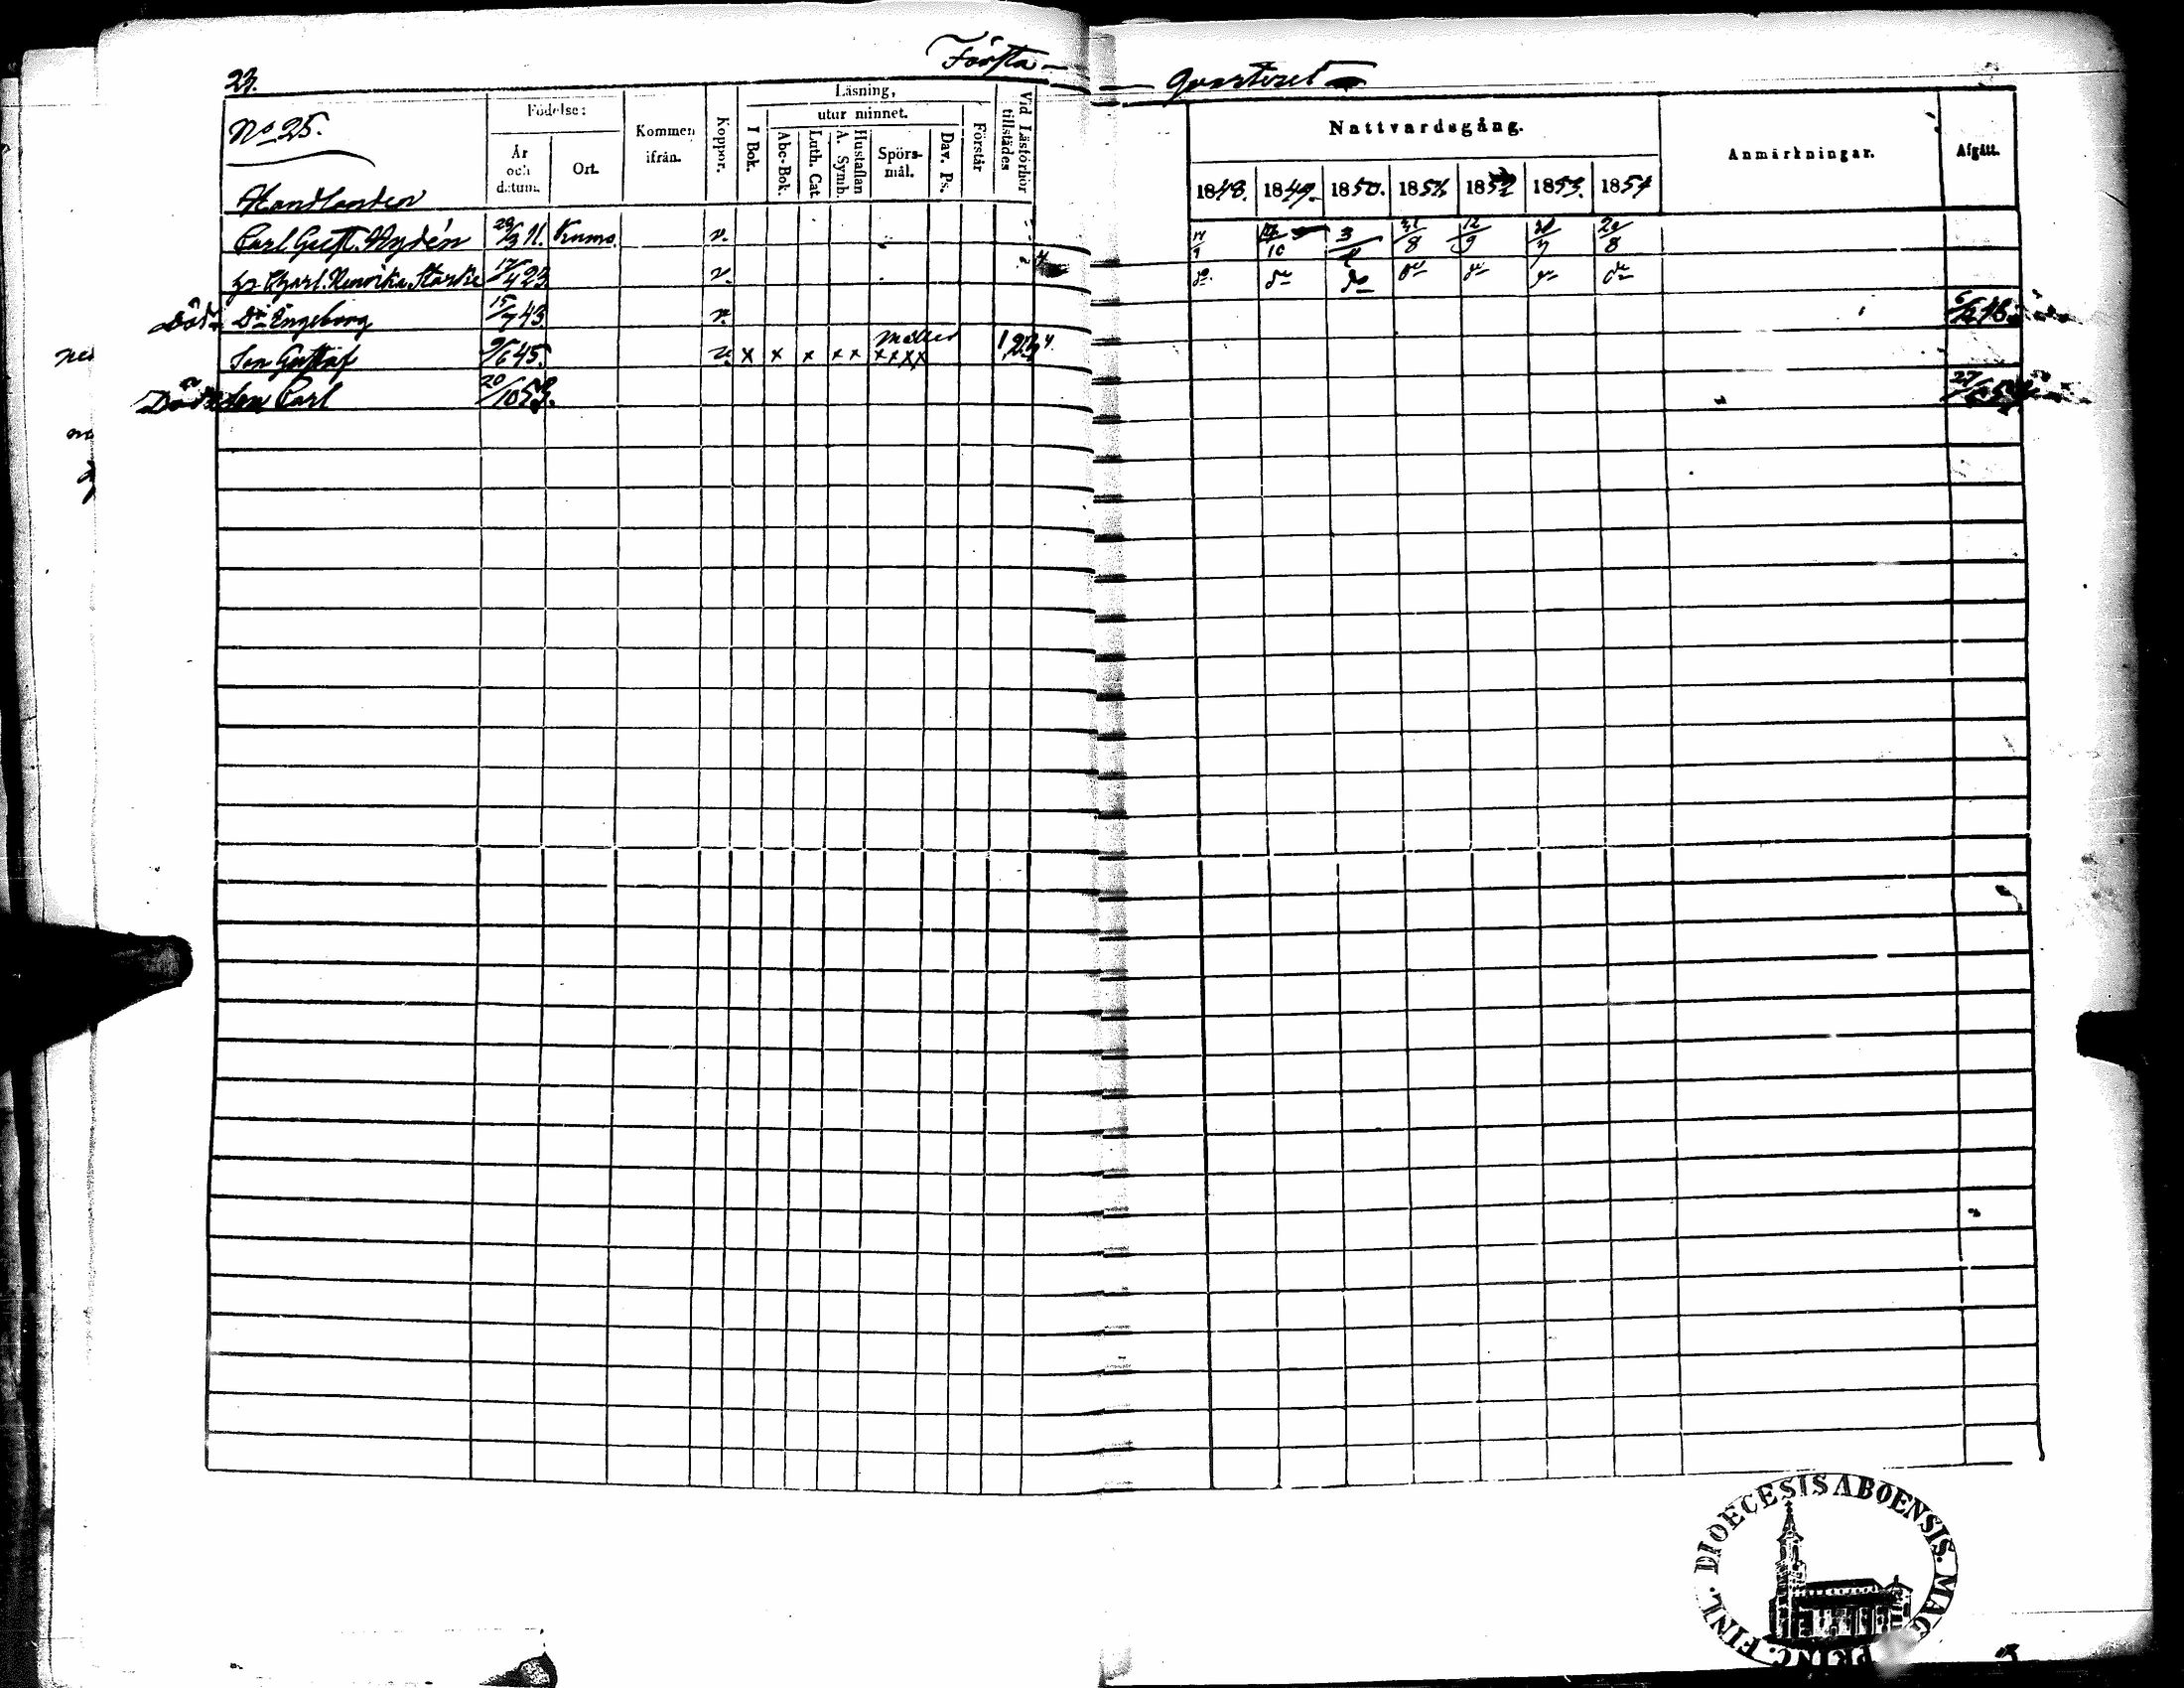 Första - Quarteret
23.
No 25.
Födelse:
År och datum.
Ort.
Kommen ifrån.
Koppor.
Läsning,
I Bok.
utur minnet.
Abc-Bok.
Luth. Cat
Hustaflan A. Symb.
Spörs-mål.
Dav. Ps.
Förstår
Vid Läsförhör tillstädes
Nattvardsgång.
1848. 1849. 1850. 1851. 1852 1853. 1854
Anmärkningar.
Afgått.
Handlanden
Carl Gust. Nydén 29/3 11. Kumo v. 10 3 31/8 12/9 7 20/8
Hu Charl. Henrika Starke 17/4 23 v. do do do do do do do
Död Dr Engeborg 15/7 43 v.
Son Gustaf 9/6 45. v. x x x x x xxxx
Död Son Carl 20/10 53. 27/
FINL. DIOECESIS ABOENSIS. MAG. PRINC.